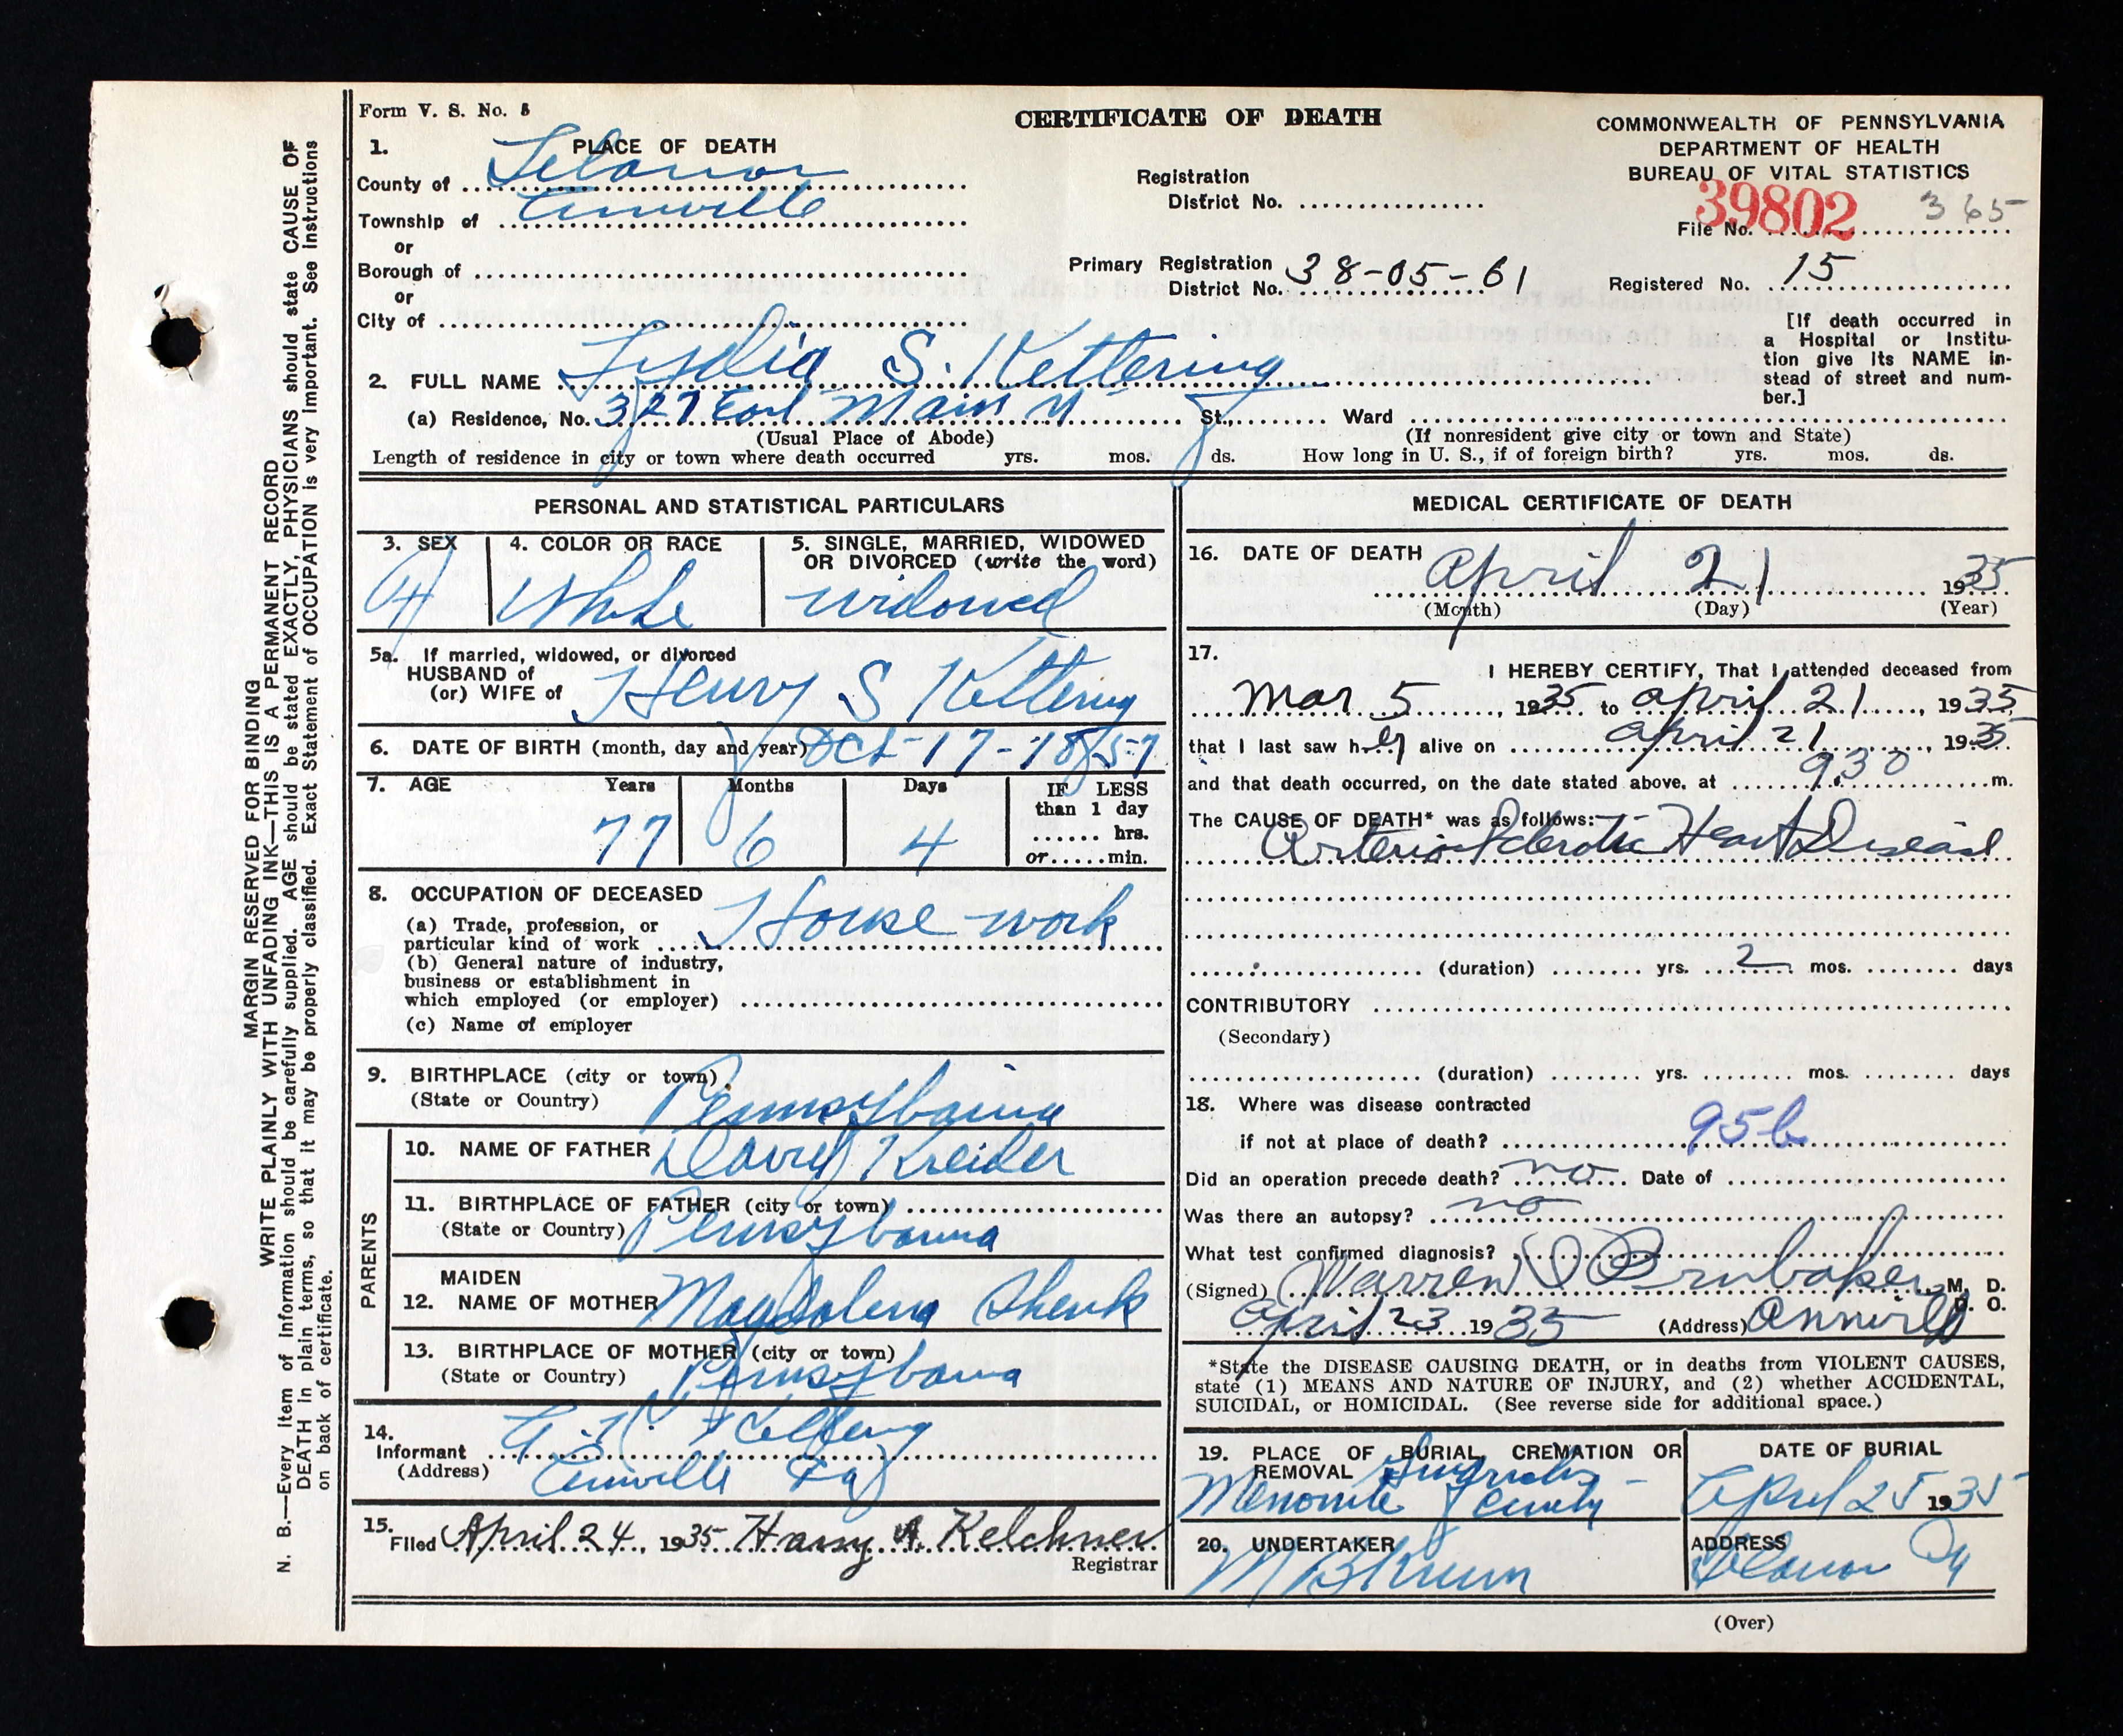 Form V. S. No. 5
CERTIFICATE OF DEATH
COMMONWEALTH OF PENNSYLVANIA
DEPARTMENT OF HEALTH
BUREAU OF VITAL STATISTICS
39802
365
File No.
1. PLACE OF DEATH
County of Lebanon
Township of Annville
or
Borough of
or
City of
Registration
District No.
Primary Registration
District No. 38-05-61
Registered No. 15
[If death occurred in
a Hospital or Institu-
tion give its NAME in-
stead of street and num-
ber.]
2. FULL NAME Lydia S. Kettering
(a) Residence, No. 327 East Main St., Ward
(Usual Place of Abode)
(If nonresident give city or town and State)
Length of residence in city or town where death occurred yrs. mos. ds. How long in U. S., if of foreign birth? yrs. mos. ds.
PERSONAL AND STATISTICAL PARTICULARS
3. SEX
4. COLOR OR RACE
White
5. SINGLE, MARRIED, WIDOWED
OR DIVORCED (write the word)
widowed
5a. If married, widowed, or divorced
HUSBAND of
(or) WIFE of Henry S Kettering
6. DATE OF BIRTH (month, day and year) Oct-17-1857
7. AGE Years Months Days
77 6 4
IF LESS
than 1 day
hrs.
or min.
8. OCCUPATION OF DECEASED
(a) Trade, profession, or
particular kind of work House-work
(b) General nature of industry,
business or establishment in
which employed (or employer)
(c) Name of employer
9. BIRTHPLACE (city or town)
(State or Country) Pennsylvania
PARENTS
10. NAME OF FATHER David Kreider
11. BIRTHPLACE OF FATHER (city or town)
(State or Country) Pennsylvania
12. MAIDEN
NAME OF MOTHER Magdalena Shenk
13. BIRTHPLACE OF MOTHER (city or town)
(State or Country) Pennsylvania
14.
Informant Kettering
(Address) Annville Pa
15.
Filed April 24, 1935 Harry A. Kelchner
Registrar
MEDICAL CERTIFICATE OF DEATH
16. DATE OF DEATH April 21 1935
(Month) (Day) (Year)
17.
I HEREBY CERTIFY, That I attended deceased from
Mar 5, 1935 to April 21, 1935
that I last saw her alive on April 21, 1935
and that death occurred, on the date stated above, at 9.30 m.
The CAUSE OF DEATH* was as follows:
Arterio Sclerotic Heart Disease
(duration) yrs. 2 mos. days
CONTRIBUTORY
(Secondary)
(duration) yrs. mos. days
18. Where was disease contracted
if not at place of death? 95b
Did an operation precede death? no Date of
Was there an autopsy? no
What test confirmed diagnosis?
(Signed) Warren D Brubaker, M. D.
D. O.
April 23 1935 (Address) Annville
*State the DISEASE CAUSING DEATH, or in deaths from VIOLENT CAUSES,
state (1) MEANS AND NATURE OF INJURY, and (2) whether ACCIDENTAL,
SUICIDAL, or HOMICIDAL. (See reverse side for additional space.)
19. PLACE OF BURIAL, CREMATION OR
REMOVAL Gingrich
Menonite
DATE OF BURIAL
April 25 1935
20. UNDERTAKER
M B Krum
ADDRESS
Lebanon Pa
(Over)
MARGIN RESERVED FOR BINDING
WRITE PLAINLY WITH UNFADING INK—THIS IS A PERMANENT RECORD
N. B.—Every item of information should be carefully supplied. AGE should be stated EXACTLY, PHYSICIANS should state CAUSE OF
DEATH in plain terms, so that it may be properly classified. Exact Statement of OCCUPATION is very important. See instructions
on back of certificate.